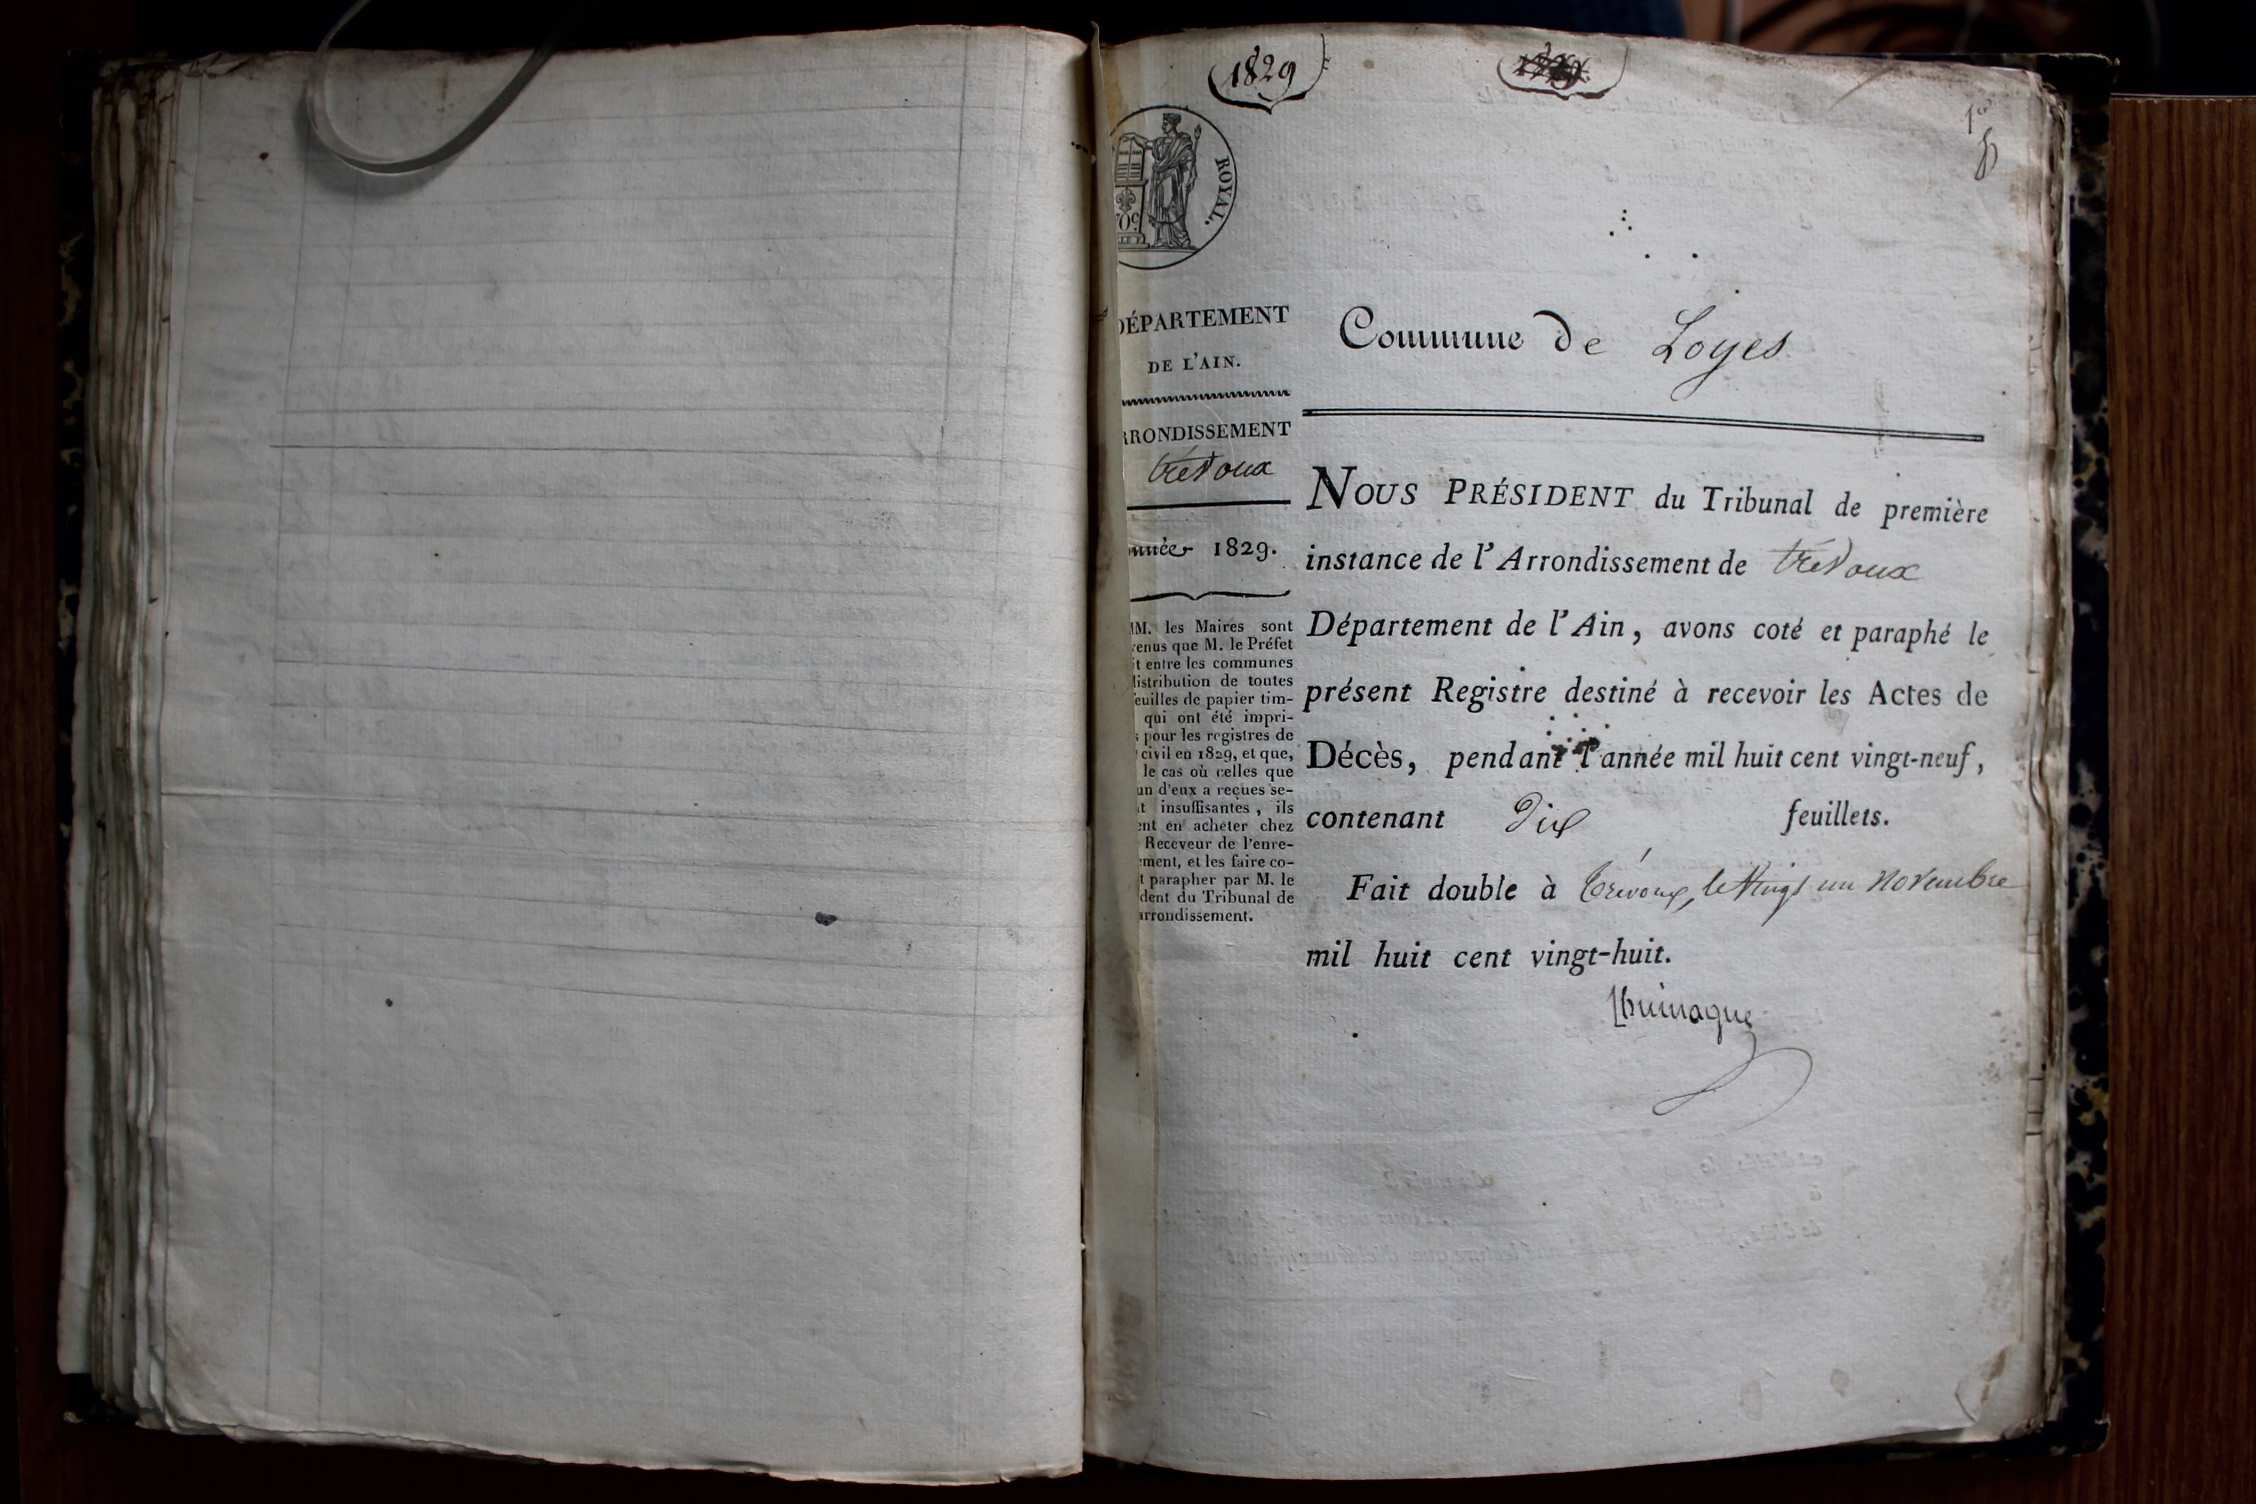 1829
1er
ROYAL.
0c.
DÉPARTEMENT
DE L'AIN.
Commune de Loyes
RRONDISSEMENT
trévoux
nnée 1829.
MM. les Maires sont
enus que M. le Préfet
it entre les communes
distribution de toutes
feuilles de papier tim-
qui ont été impri-
s pour les registres de
civil en 1829, et que,
le cas où celles que
un d'eux a reçues se-
nt insuffisantes, ils
ent en acheter chez
Receveur de l'enre-
ment, et les faire co-
t parapher par M. le
dent du Tribunal de
arrondissement.
NOUS PRÉSIDENT du Tribunal de première
instance de l'Arrondissement de trévoux
Département de l'Ain, avons coté et paraphé le
présent Registre destiné à recevoir les Actes de
Décès, pendant l'année mil huit cent vingt-neuf,
contenant Dix feuillets.
Fait double à Trévoux, le Vingt un Novembre
mil huit cent vingt-huit.